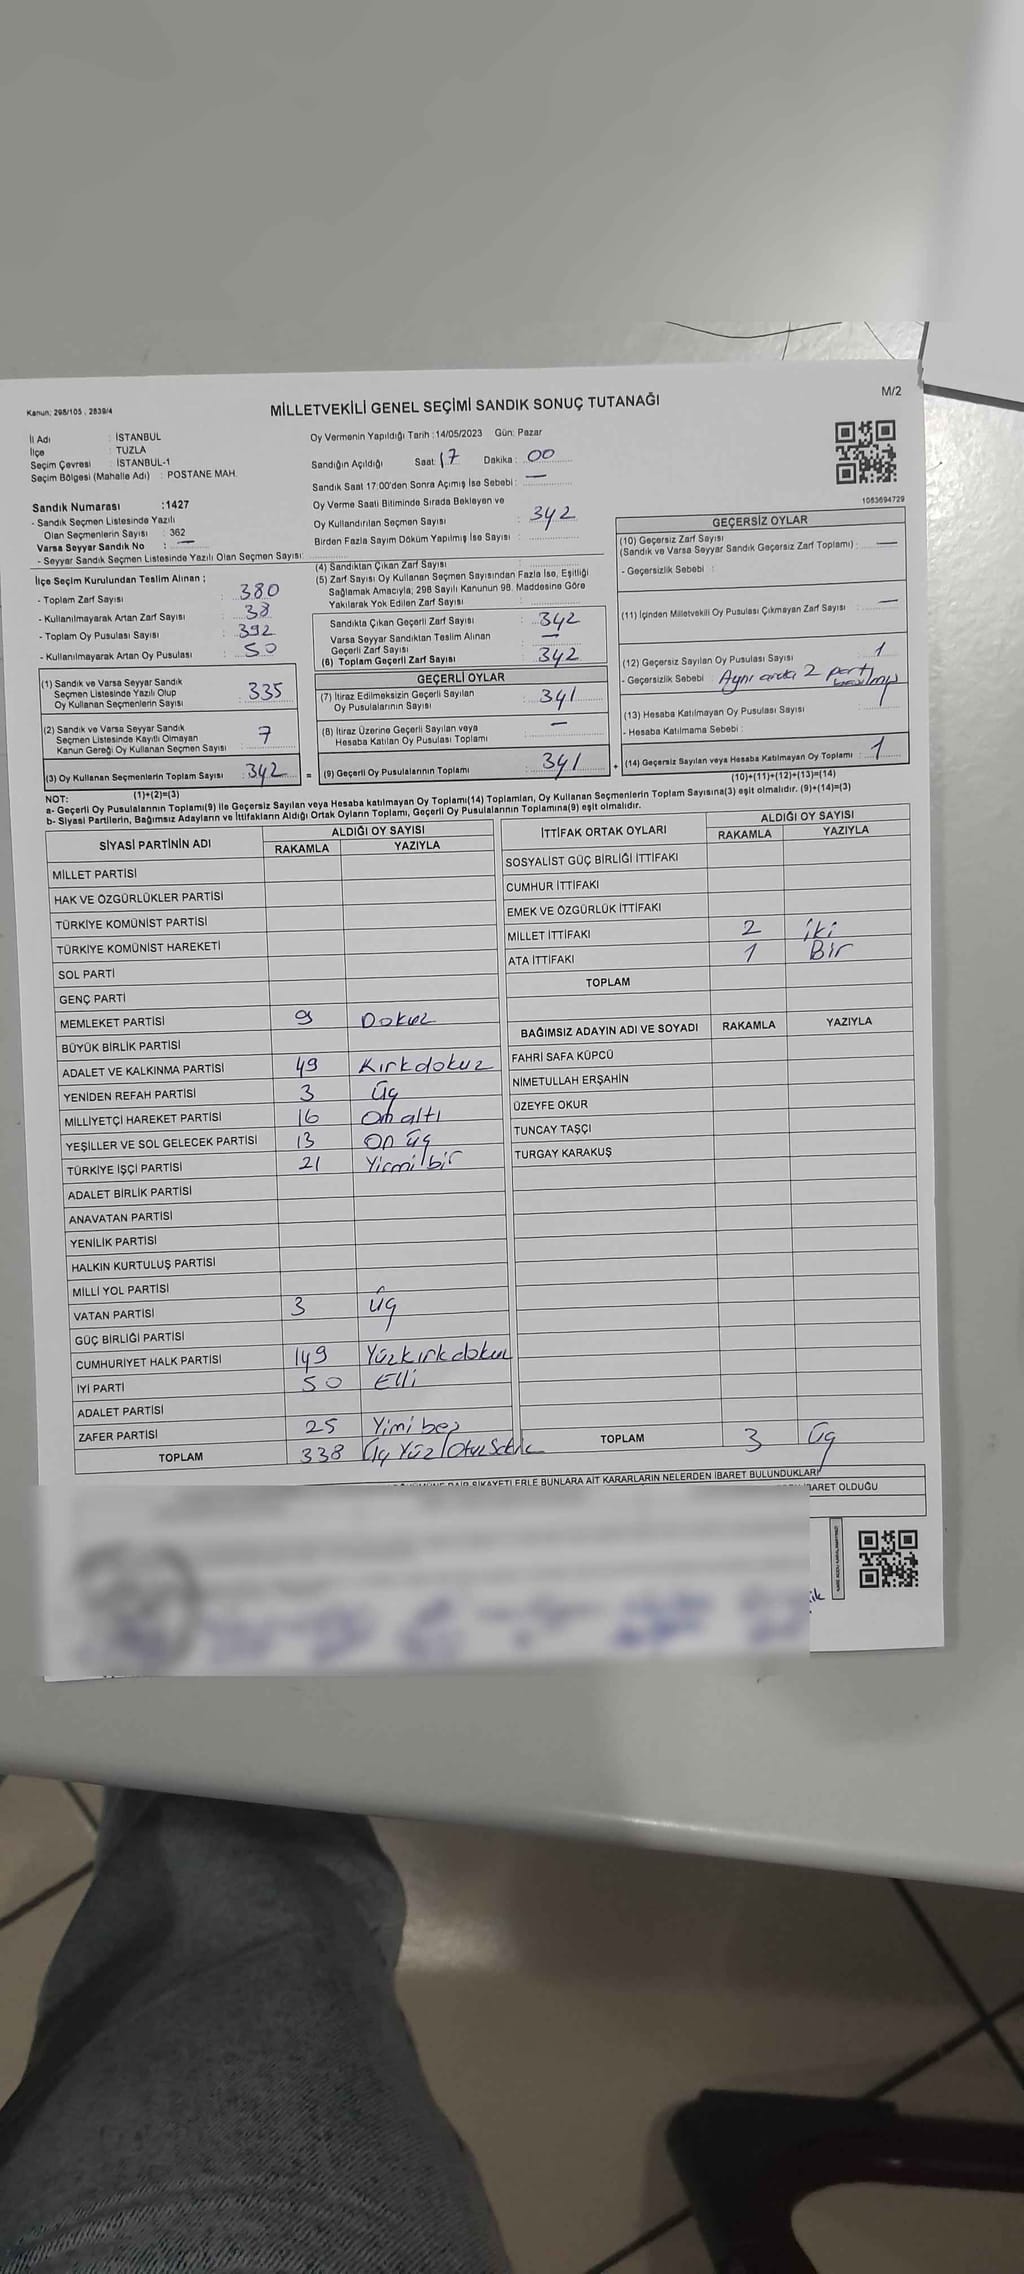 Kanun: 298/105 , 2839/4
MİLLETVEKİLİ GENEL SEÇİMİ SANDIK SONUÇ TUTANAĞI
M/2
İl Adı : İSTANBUL
İlçe : TUZLA
Seçim Çevresi : İSTANBUL-1
Seçim Bölgesi (Mahalle Adı) : POSTANE MAH.
Sandık Numarası :1427
- Sandık Seçmen Listesinde Yazılı
Olan Seçmenlerin Sayısı : 362
Varsa Seyyar Sandık No : —
- Seyyar Sandık Seçmen Listesinde Yazılı Olan Seçmen Sayısı:
İlçe Seçim Kurulundan Teslim Alınan ;
- Toplam Zarf Sayısı : 380
- Kullanılmayarak Artan Zarf Sayısı : 38
- Toplam Oy Pusulası Sayısı : 392
- Kullanılmayarak Artan Oy Pusulası : 50
(1) Sandık ve Varsa Seyyar Sandık
Seçmen Listesinde Yazılı Olup
Oy Kullanan Seçmenlerin Sayısı : 335
(2) Sandık ve Varsa Seyyar Sandık
Seçmen Listesinde Kayıtlı Olmayan
Kanun Gereği Oy Kullanan Seçmen Sayısı : 7
(3) Oy Kullanan Seçmenlerin Toplam Sayısı : 342
(1)+(2)=(3)
Oy Vermenin Yapıldığı Tarih :14/05/2023 Gün: Pazar
Sandığın Açıldığı Saat : 17 Dakika : 00
Sandık Saat 17:00'den Sonra Açılmış İse Sebebi : —
Oy Verme Saati Bitiminde Sırada Bekleyen ve
Oy Kullandırılan Seçmen Sayısı : 342
Birden Fazla Sayım Döküm Yapılmış İse Sayısı :
(4) Sandıktan Çıkan Zarf Sayısı :
(5) Zarf Sayısı Oy Kullanan Seçmen Sayısından Fazla İse, Eşitliği
Sağlamak Amacıyla, 298 Sayılı Kanunun 98. Maddesine Göre
Yakılarak Yok Edilen Zarf Sayısı :
Sandıkta Çıkan Geçerli Zarf Sayısı : 342
Varsa Seyyar Sandıktan Teslim Alınan
Geçerli Zarf Sayısı : —
(6) Toplam Geçerli Zarf Sayısı : 342
GEÇERLİ OYLAR
(7) İtiraz Edilmeksizin Geçerli Sayılan
Oy Pusulalarının Sayısı : 341
(8) İtiraz Üzerine Geçerli Sayılan veya
Hesaba Katılan Oy Pusulası Toplamı : —
= (9) Geçerli Oy Pusulalarının Toplamı : 341 +
1083694729
GEÇERSİZ OYLAR
(10) Geçersiz Zarf Sayısı
(Sandık ve Varsa Seyyar Sandık Geçersiz Zarf Toplamı) : —
- Geçersizlik Sebebi :
(11) İçinden Milletvekili Oy Pusulası Çıkmayan Zarf Sayısı : —
(12) Geçersiz Sayılan Oy Pusulası Sayısı : 1
- Geçersizlik Sebebi : Aynı anda 2 parti
(13) Hesaba Katılmayan Oy Pusulası Sayısı :
- Hesaba Katılmama Sebebi :
(14) Geçersiz Sayılan veya Hesaba Katılmayan Oy Toplamı : 1
(10)+(11)+(12)+(13)=(14)
NOT:
a- Geçerli Oy Pusulalarının Toplamı(9) ile Geçersiz Sayılan veya Hesaba katılmayan Oy Toplamı(14) Toplamları, Oy Kullanan Seçmenlerin Toplam Sayısına(3) eşit olmalıdır. (9)+(14)=(3)
b- Siyasi Partilerin, Bağımsız Adayların ve İttifakların Aldığı Ortak Oyların Toplamı, Geçerli Oy Pusulalarının Toplamına(9) eşit olmalıdır.
SİYASİ PARTİNİN ADI
ALDIĞI OY SAYISI
RAKAMLA YAZIYLA
MİLLET PARTİSİ
HAK VE ÖZGÜRLÜKLER PARTİSİ
TÜRKİYE KOMÜNİST PARTİSİ
TÜRKİYE KOMÜNİST HAREKETİ
SOL PARTİ
GENÇ PARTİ
MEMLEKET PARTİSİ 9 Dokuz
BÜYÜK BİRLİK PARTİSİ
ADALET VE KALKINMA PARTİSİ 49 Kırkdokuz
YENİDEN REFAH PARTİSİ 3 Üç
MİLLİYETÇİ HAREKET PARTİSİ 16 On altı
YEŞİLLER VE SOL GELECEK PARTİSİ 13 On üç
TÜRKİYE İŞÇİ PARTİSİ 21 Yirmi bir
ADALET BİRLİK PARTİSİ
ANAVATAN PARTİSİ
YENİLİK PARTİSİ
HALKIN KURTULUŞ PARTİSİ
MİLLİ YOL PARTİSİ
VATAN PARTİSİ 3 üç
GÜÇ BİRLİĞİ PARTİSİ
CUMHURİYET HALK PARTİSİ 149 Yüzkırkdokuz
İYİ PARTİ 50 Elli
ADALET PARTİSİ
ZAFER PARTİSİ 25 Yimi beş
TOPLAM 338 Üç Yüz Otuz Sekiz
İTTİFAK ORTAK OYLARI
ALDIĞI OY SAYISI
RAKAMLA YAZIYLA
SOSYALİST GÜÇ BİRLİĞİ İTTİFAKI
CUMHUR İTTİFAKI
EMEK VE ÖZGÜRLÜK İTTİFAKI
MİLLET İTTİFAKI 2 iki
ATA İTTİFAKI 1 Bir
TOPLAM
BAĞIMSIZ ADAYIN ADI VE SOYADI RAKAMLA YAZIYLA
FAHRİ SAFA KÜPCÜ
NİMETULLAH ERŞAHİN
ÜZEYFE OKUR
TUNCAY TAŞÇI
TURGAY KARAKUŞ
TOPLAM 3 Üç
ŞİKAYETLERLE BUNLARA AİT KARARLARIN NELERDEN İBARET BULUNDUKLARI
OLDUĞU